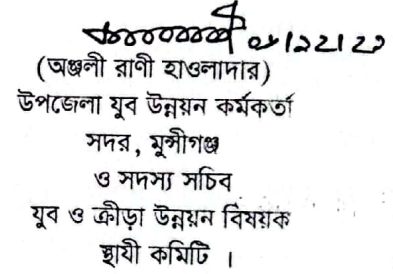 (অঞ্জলী রাণী হাওলাদার)
উপজেলা যুব উন্নয়ন কর্মকর্তা
সদর, মুন্সীগঞ্জ
ও সদস্য সচিব
যুব ও ক্রীড়া উন্নয়ন বিষয়ক
স্থায়ী কমিটি ।